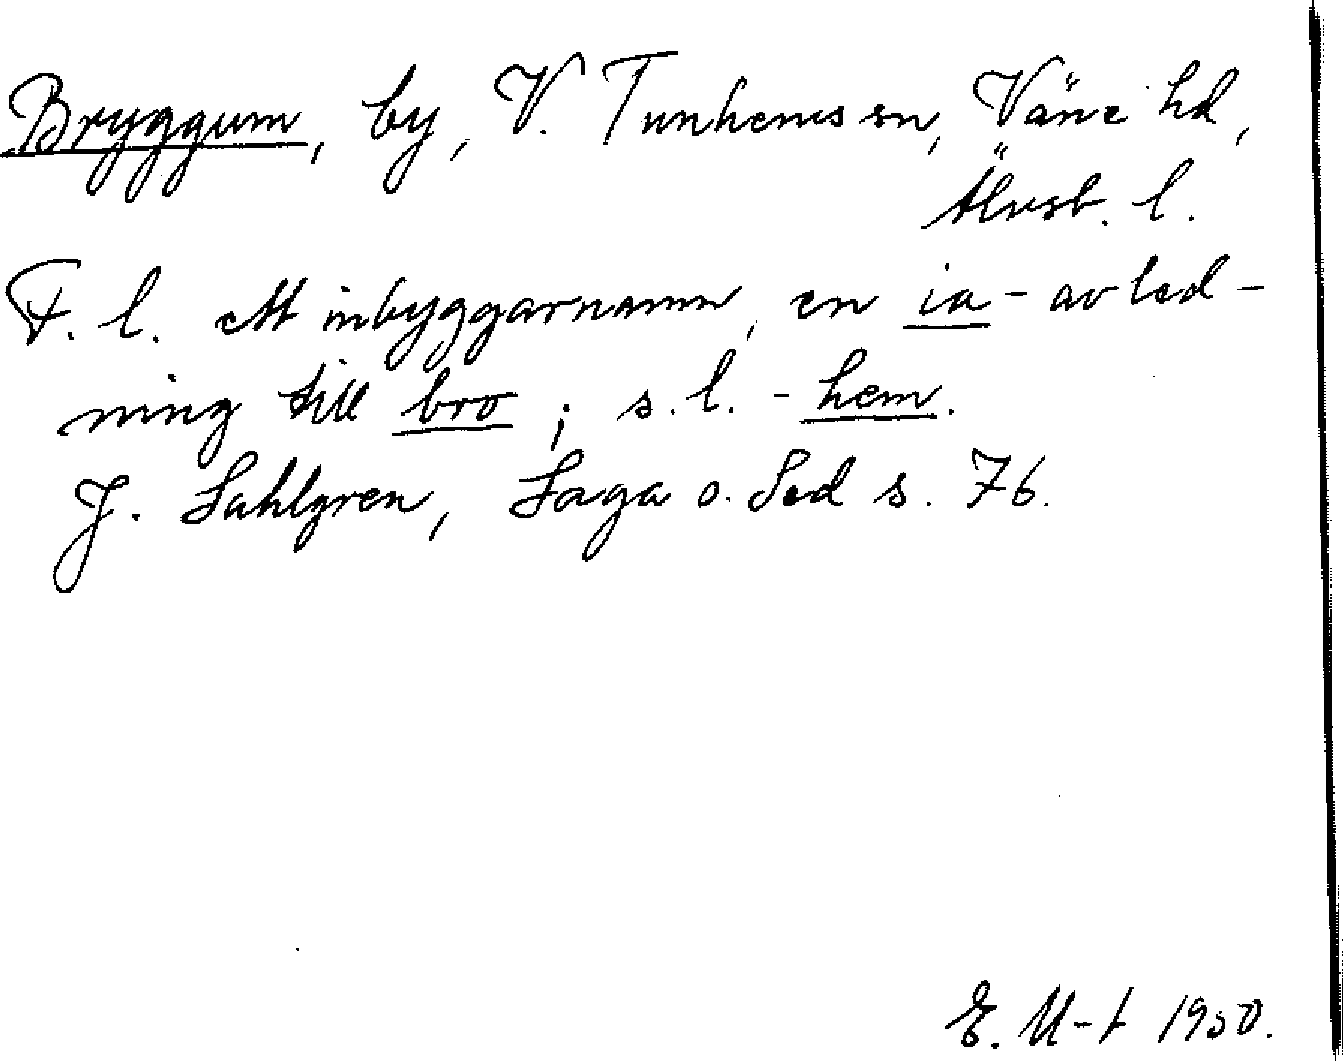 Bryggum, by, V. Tunhems sn, Väne hd,
Älvsb. l.
F. l. ett inbyggarnamn, en ia-avled-
ning till bro; s. l. -hem.
J. Sahlgren, Saga o. Sed s. 76.
E. U-t 1950.